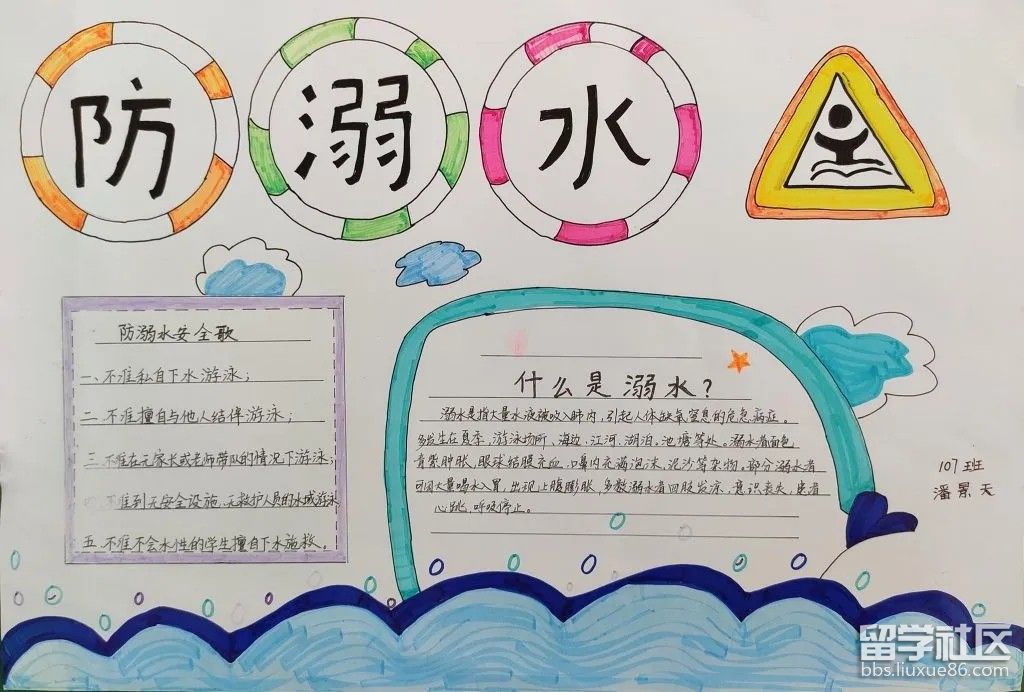 防溺水
防溺水安全歌
一、不准私自下水游泳；
二、不准擅自与他人结伴游泳；
三、不准在无家长或老师带队的情况下游泳；
四、不准到无安全设施、无救护人员的水域游泳
五、不准不会水性的学生擅自下水施救。
什么是溺水？
溺水是指大量水液被吸入肺内，引起人体缺氧窒息的危急病症。
多发生在夏季，游泳场所、海边、江河、湖泊、池塘等处。溺水者面色
青紫肿胀，眼球结膜充血，口鼻内充满泡沫、泥沙等杂物。部分溺水者
可因大量喝水入胃，出现上腹膨胀，多数溺水者四肢发凉，意识丧失，患者
心跳、呼吸停止。
107班
潘景天
留学社区
bbs.liuxue86.com